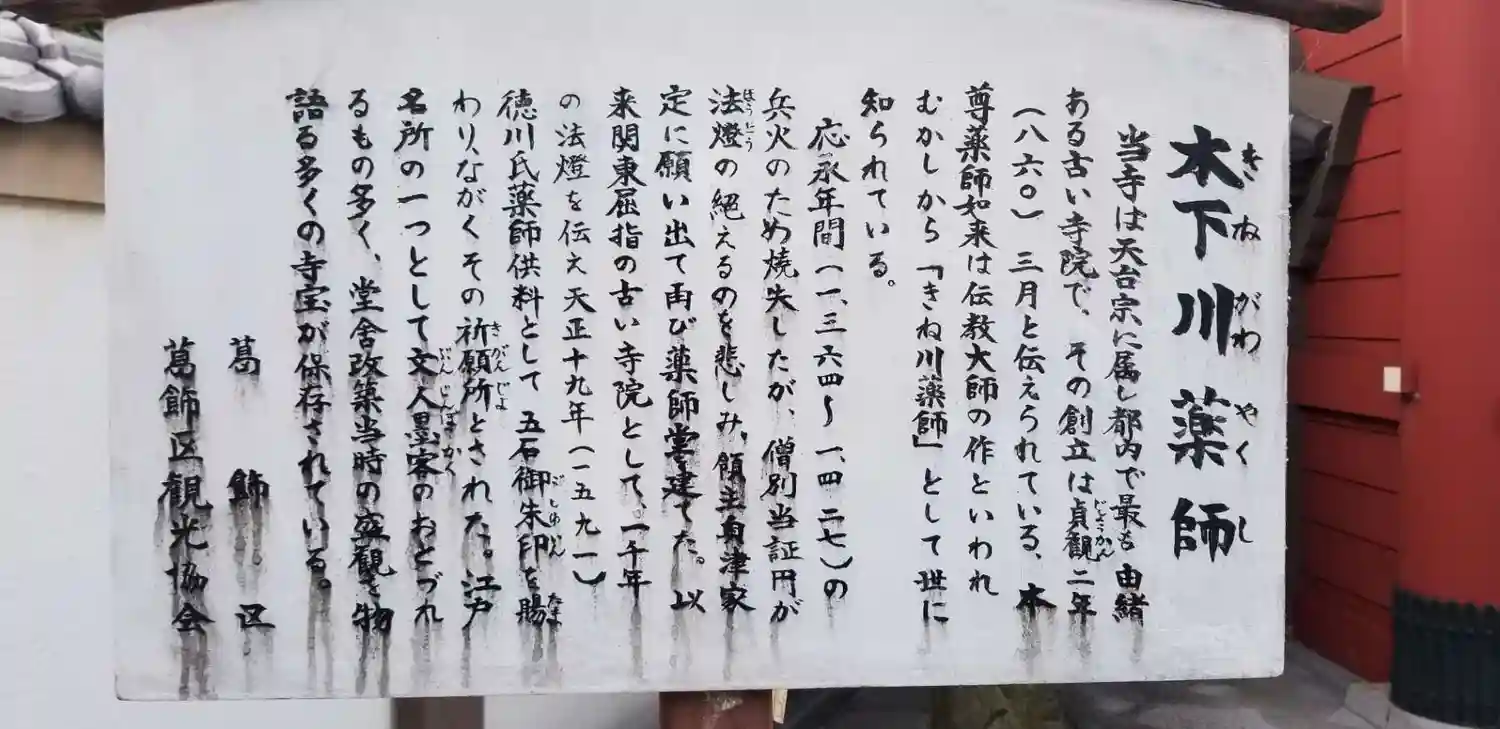 木下川薬師
きねがわやくし
当寺は天台宗に属し都内で最も由緒
ある古い寺院で、その創立は貞観二年
じょうかん
(八六〇)三月と伝えられている、本
尊薬師如来は伝教大師の作といわれ
むかしから「きね川薬師」として世に
知られている。
応永年間(一、三六四〜一、四二七)の
兵火のため焼失したが、僧別当証円が
法燈の絶えるのを悲しみ、領主奥津家
ほうとう
定に願い出て再び薬師堂を建てた。以
来関東屈指の古い寺院として、一千年
の法燈を伝え天正十九年(一五九一)
徳川氏薬師供料として五石御朱印を賜
ごしゅいん
たま
わり、ながくその祈願所とされた。江戸
きがんじょ
名所の一つとして文人墨客のおとづれ
ぶんじんぼっかく
るもの多く、堂舎改築当時の盛観を物
語る多くの寺宝が保存されている。
葛飾区
葛飾区観光協会